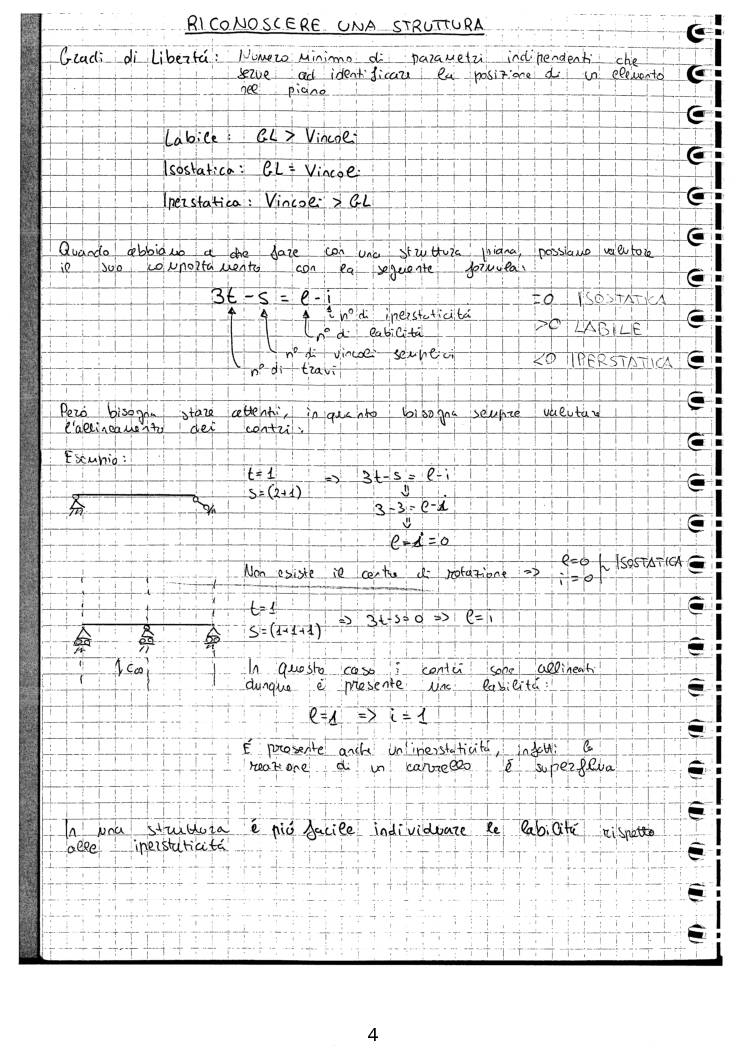 RICONOSCERE UNA STRUTTURA
Gradi di Libertá: Numero minimo di parametri indipendenti che
serve ad identificare la posizione di un elemento
nel piano
Labile: GL > Vincoli
Isostatica: GL = Vincoli
Iperstatica: Vincoli > GL
Quando abbiamo a che fare con una struttura piana, possiamo valutare
il suo comportamento con la seguente formula:
3t - s = l - i
n° di iperstaticitá
n° di labilitá
n° di vincoli semplici
n° di travi
=0 ISOSTATICA
>0 LABILE
<0 IPERSTATICA
Peró bisogna stare attenti, in quanto bisogna sempre valutare
l'allineamento dei centri.
Esempio:
t=1
s=(2+1)
=> 3t-s = l-i
⇓
3-3 = l-i
⇓
l-i=0
Non esiste il centro di rotazione => l=0 i=0 ISOSTATICA
t=1
s=(1+1+1)
=> 3t-s=0 => l=i
C∞
In questo caso i centri sono allineati
dunque é presente una labilitá:
l=1 => i=1
É presente anche un'iperstaticitá, infatti la
reazione di un carrello é superflua
In una struttura é piú facile individuare le labilitá rispetto
alle iperstaticitá
4